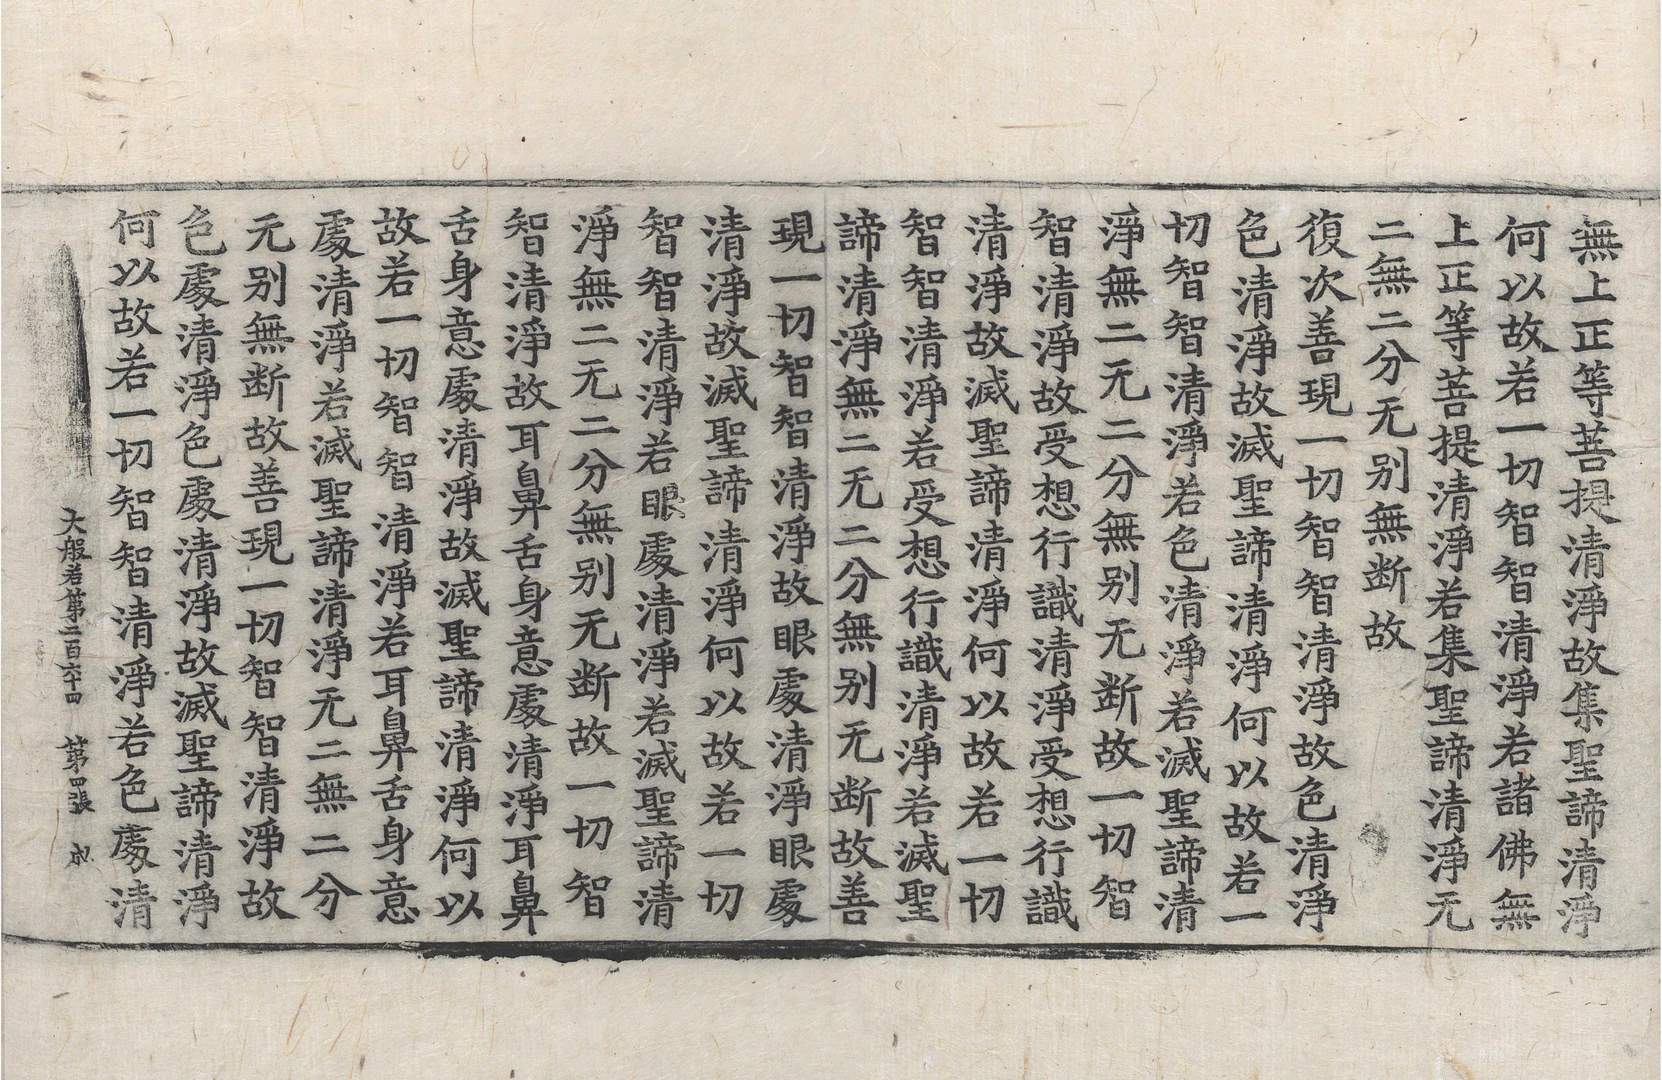 無上正等菩提清淨故集聖諦清淨
何以故若一切智智清淨若諸佛無
上正等菩提清淨若集聖諦清淨无
二無二分无别無断故
復次善現一切智智清淨故色清淨
色清淨故滅聖諦清淨何以故若一
切智智清淨若色清淨若滅聖諦清
淨無二无二分無别无断故一切智
智清淨故受想行識清淨受想行識
清淨故滅聖諦清淨何以故若一切
智智清淨若受想行識清淨若滅聖
諦清淨無二无二分無别无断故善
現一切智智清淨故眼處清淨眼處
清淨故滅聖諦清淨何以故若一切
智智清淨若眼處清淨若滅聖諦清
淨無二无二分無别无断故一切智
智清淨故耳鼻舌身意處清淨耳鼻
舌身意處清淨故滅聖諦清淨何以
故若一切智智清淨若耳鼻舌身意
處清淨若滅聖諦清淨无二無二分
无别無断故善現一切智智清淨故
色處清淨色處清淨故滅聖諦清淨
何以故若一切智智清淨若色處清
大般若第二百六十四 第四張 成